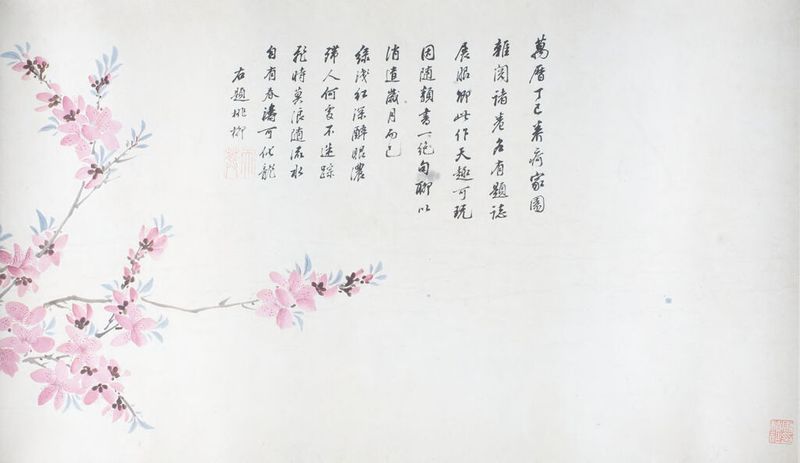 萬曆丁巳養痾家園
雜閱諸卷各有題誌
展昭卿此作天趣可玩
因隨類書一絕句聊以
消遣歲月而已
綠淺紅深醉眼濃
殢人何處不迷踪
花時莫浪隨流水
自有春濤可化龍
右題桃柳